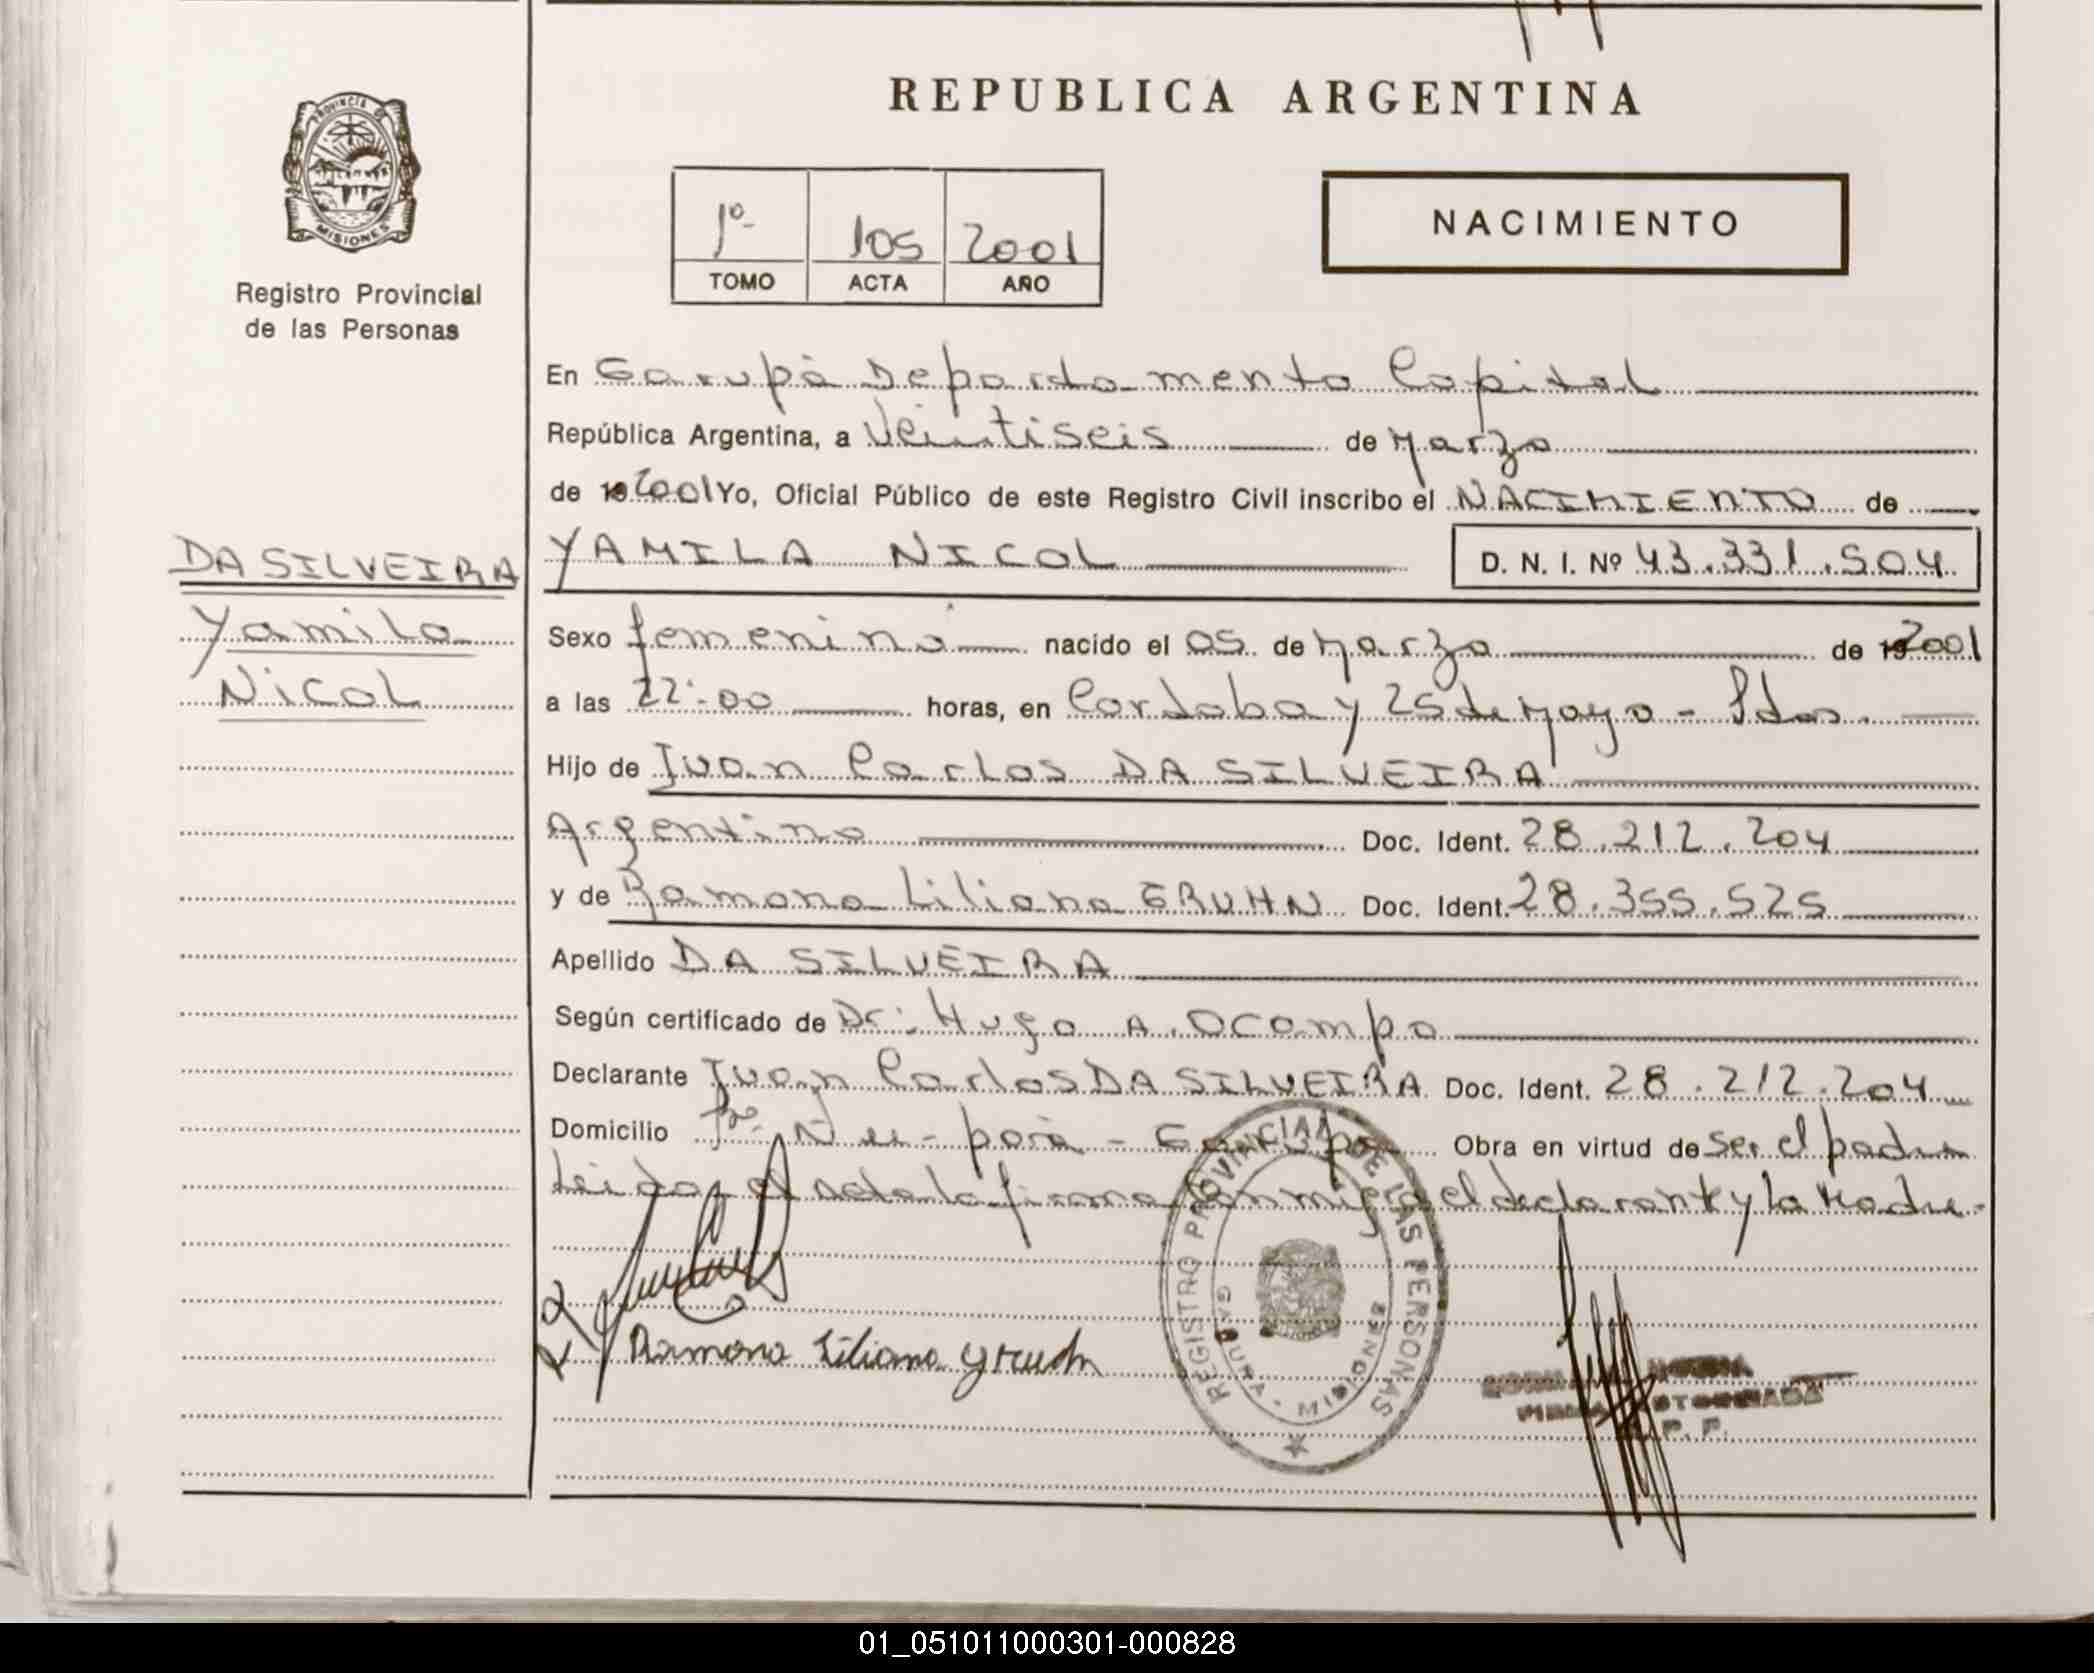 REPUBLICA ARGENTINA
PROVINCIA DE
MISIONES
Registro Provincial
de las Personas
1º
105
2001
TOMO
ACTA
AÑO
NACIMIENTO
En Garupá Departamento Capital
República Argentina, a Veintiseis de Marzo
de 2001 Yo, Oficial Público de este Registro Civil inscribo el NACIMIENTO de
DA SILVEIRA
Yamila
Nicol
YAMILA NICOL D. N. I. Nº 43.331.504
Sexo femenino nacido el 05 de Marzo de 2001
a las 22:00 horas, en Cordoba y 25 de Mayo - Pdas.
Hijo de Juan Carlos DA SILVEIRA
Argentino Doc. Ident. 28.212.204
y de Ramona Liliana GRUHN Doc. Ident. 28.355.525
Apellido DA SILVEIRA
Según certificado de Dr: Hugo A. Ocampo
Declarante Juan Carlos DA SILVEIRA Doc. Ident. 28.212.204
Domicilio Bº Ñu-porá - Garupá Obra en virtud de ser el padre
Leida el acta la firma conmigo el declarante y la Madre-
REGISTRO PROVINCIAL DE LAS PERSONAS
GARUPA - MISIONES
Ramona Liliana Gruhn
01_051011000301-000828